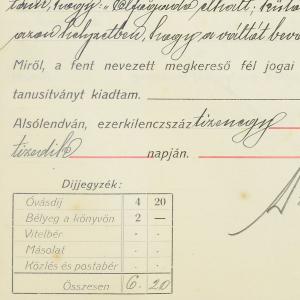 tam, hogy: "Elfogadó elhalt, 
azon helyzetben, hogy a váltót
Miről, a fent nevezett megkereső fél jogai
tanusítványt kiadtam.
Alsólendván, ezerkilenczszáz tizenegy
tizedik napján.
Díjjegyzék:
Óvásdíj 4 20
Bélyeg a könyvön 2 —
Vitelbér . .
Másolat . .
Közlés és postabér . .
Összesen 6. 20